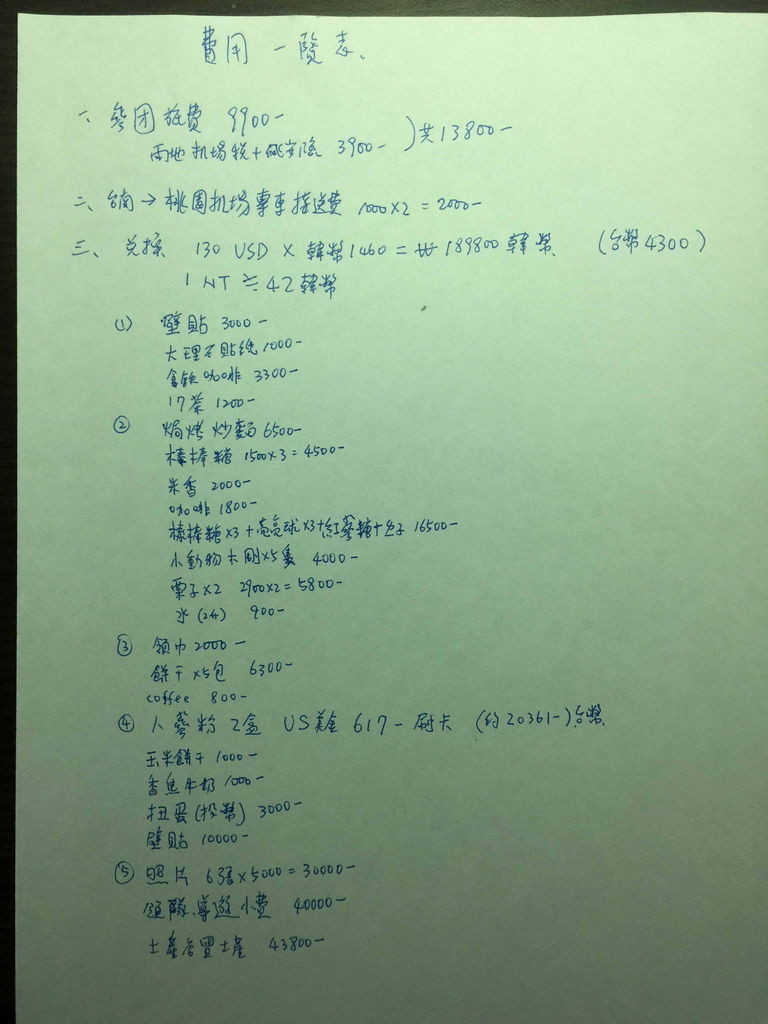 費用一覽表.
一、參团旅費 9900-
兩地机場税+ 3900- )共13800-
二、台南→桃園机场專車接送費 1000×2=2000-
三、兌換 130 USD × 韓幣1460=₩189800韓幣 (台幣4300)
1 NT ≒ 42韓幣
① 壁貼 3000-
大理石貼紙 1000-
咖啡 3300-
17茶 1200-
② 焗烤炒麵 6500-
棒棒糖 1500×3=4500-
米香 2000-
咖啡 1800-
棒棒糖×3+亮亮球×3+紅蔘糖+包子 16500-
小動物木刷×5隻 4000-
栗子×2 2900×2=5800-
水 900-
③ 領巾 2000-
餅干×5包 6300-
coffee 800-
④ 人蔘粉2盒 US美金 617-刷卡 (約20361-)台幣
玉米餅干 1000-
香蕉牛奶 1000-
扭蛋(投幣) 3000-
壁貼 10000-
⑤ 照片 6張×5000=30000-
領隊、導遊小費 40000-
土產店買土產 43800-